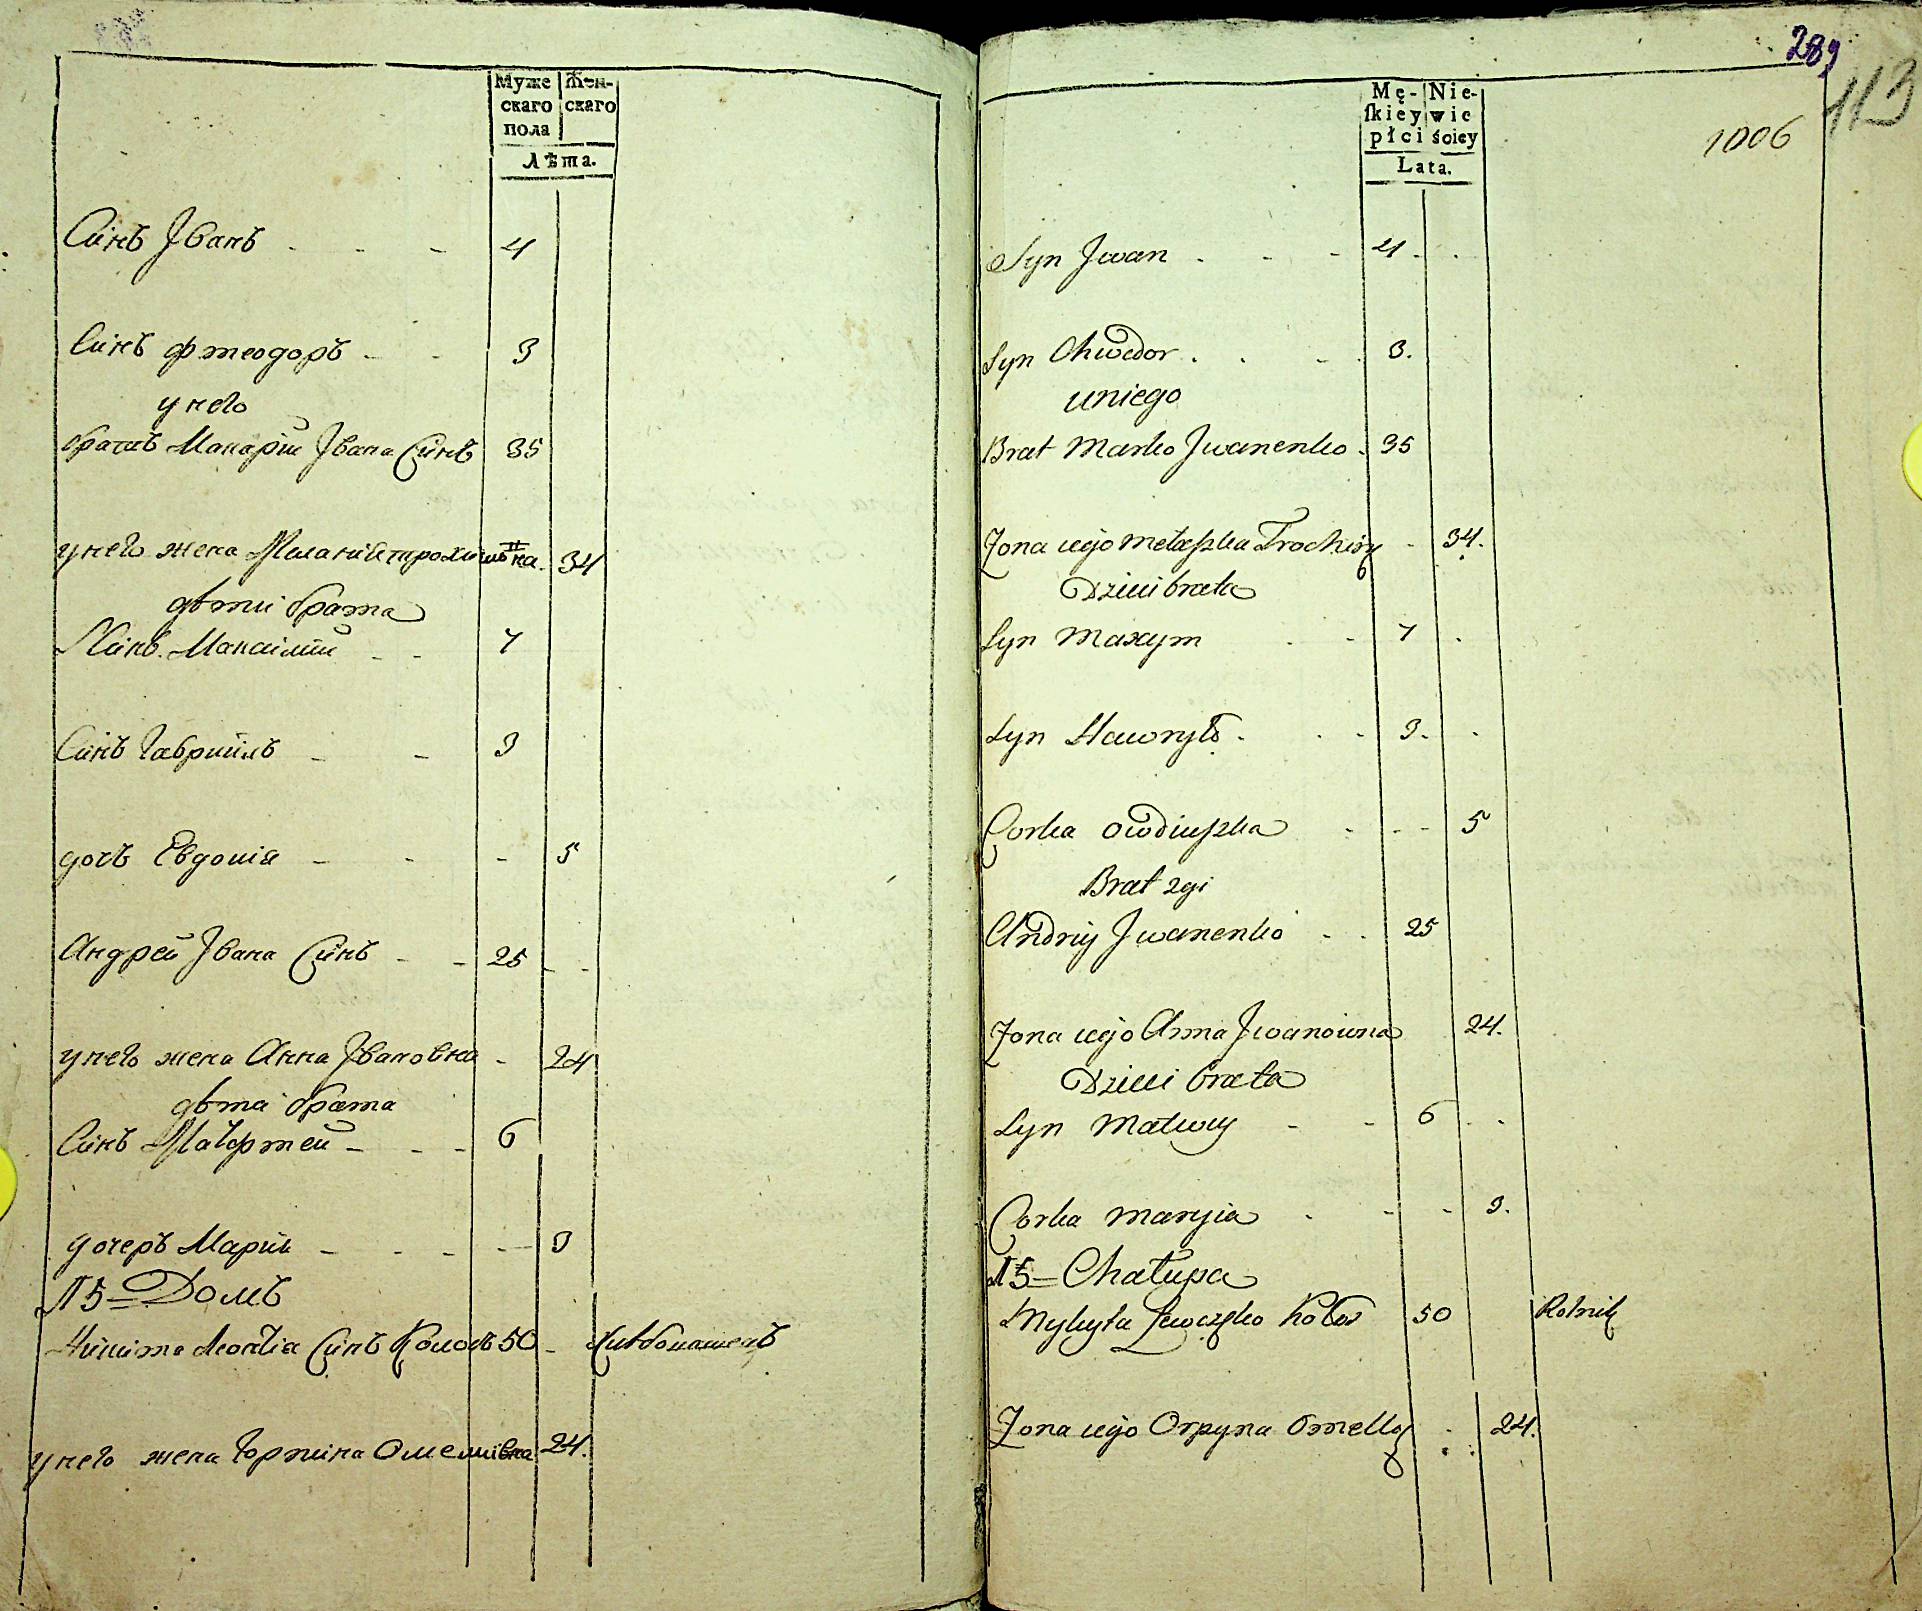 Муже Жен-
скаго скаго
пола
Лѣта.
Синъ Іванъ - - - 4
Синъ Фтеодоръ - - 3
у него
братъ Макарій Івана Синъ 35
у него жена Меланія трохимовна 34
дѣти брата
Синъ Максімій - - 7
Синъ Гавриилъ - - 3
дочъ Евдокія - - - 5
Андрей Івана Синъ - - 25 - -
у него жена Анна Івановна - 24
дѣти брата
Синъ Матфтей - - - 6
дочеръ Марія - - - - 3
15 = Домъ
Никита Леонтія Синъ 50 - Хлѣбопашецъ
у него жена Горпина Омелкивна 24.
289
113
1006
Mę- Nie-
ſkiey wie
płci ściey
Lata.
Syn Jwan - - - 4 . .
Syn Chwedor . . - . 3.
uniego
Brat Marko Jwanenko . 35
Żona iego Metaszka Trochim - 34.
Dzieci brata
Syn Maxym - - 7 .
Syn Hawryło . . - 3. .
Corka Owdiuszka - - - 5
Brat 2gi
Andriy Jwanenko - . 25
Żona iego Anna Jwanowna 24.
Dzieci brata
Syn Matwiy - - 6 . .
Corka Maryia - - - 3.
15 = Chałupa
Mykyta Lewczyko 50 Rolnik
Żona iego Orpyna Omelko - . 24.